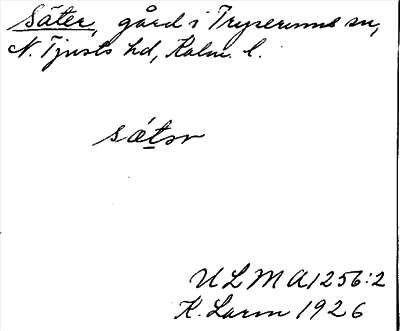 Säter, gård i Tryserums sn,
N. Tjusts hd, Kalm. l.
sǽtər
ULMA 1256:2
K. Larm 1926